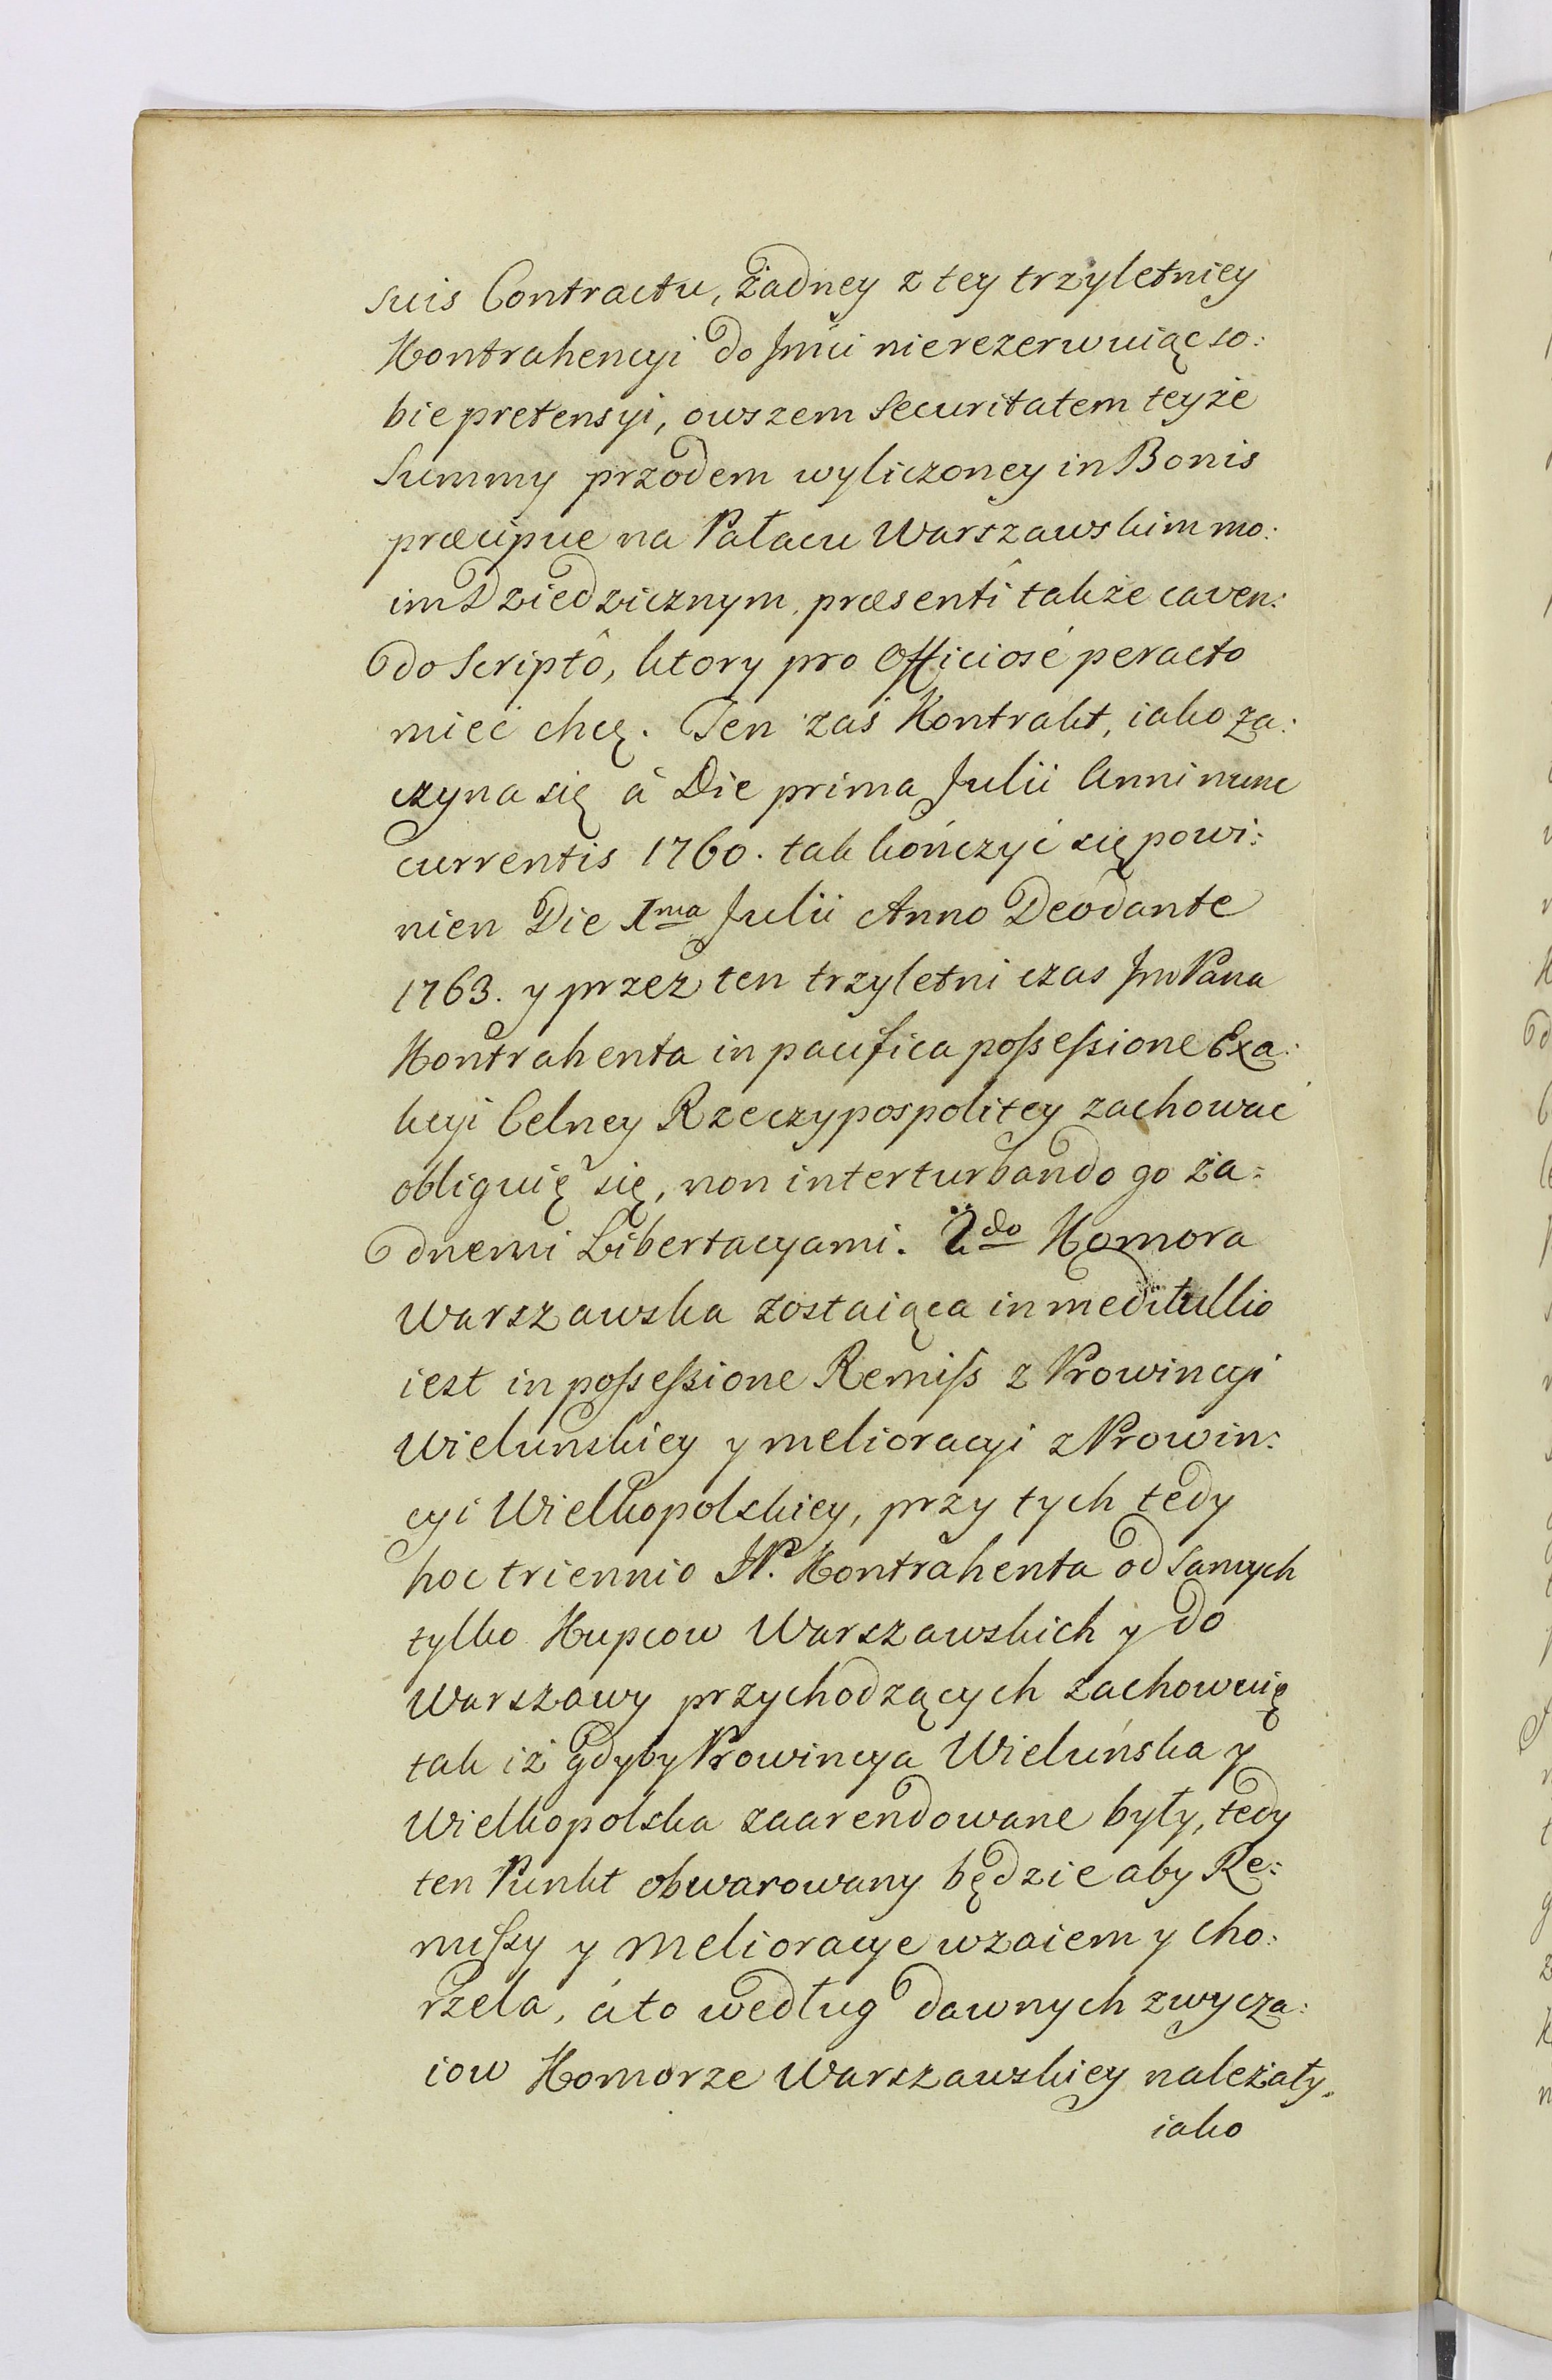 suis Contractu, żadney z tey trzyletniey
Kontrahencyi do Jmci nierezerwuiąc so:
bie pretensyi, owszem Securitatem teyże
Summy przodem wyliczoney in Bonis
præcipue na Pałacu Warszawskim mo:
im Dziedzicznym, præsentî także caven:
do Scriptô, ktory pro Officiosé peracto
mieć chcę. Ten zaś Kontrakt, iako za:
czyna się à Die prima Julii Anni nunc
currentis 1760. tak kończyć się powi:
nien Die 1ma Julii Anno Deodante
1763. y przez ten trzyletni czas Jm Pana
Kontrahenta in pacifica possessione Exa:
kcyi Celney Rzeczypospolitey zachować
obliguię się, non interturbando go ża:
dnemi Libertacyami. 2do Komora
Warszawska zostaiąca in meditullio
iest in possessione Remiss z Prowincyi
Wielunskiey y melioracyi z Prowin:
cyi Wielkopolskiey, przy tych tedy
hoc triennio JP. Kontrahenta od samych
tylko Kupcow Warszawskich y do
Warszawy przychodzących zachowuię
tak iż gdyby Prowincya Wieluńska y
Wielkopolska zaarendowane były, tedy
ten Punkt obwarowany będzie aby Re:
missy y melioracye wzaiem y Cho:
rzela, áto według dawnych zwycza:
iow Komorze Warszawskiey należały,
iako